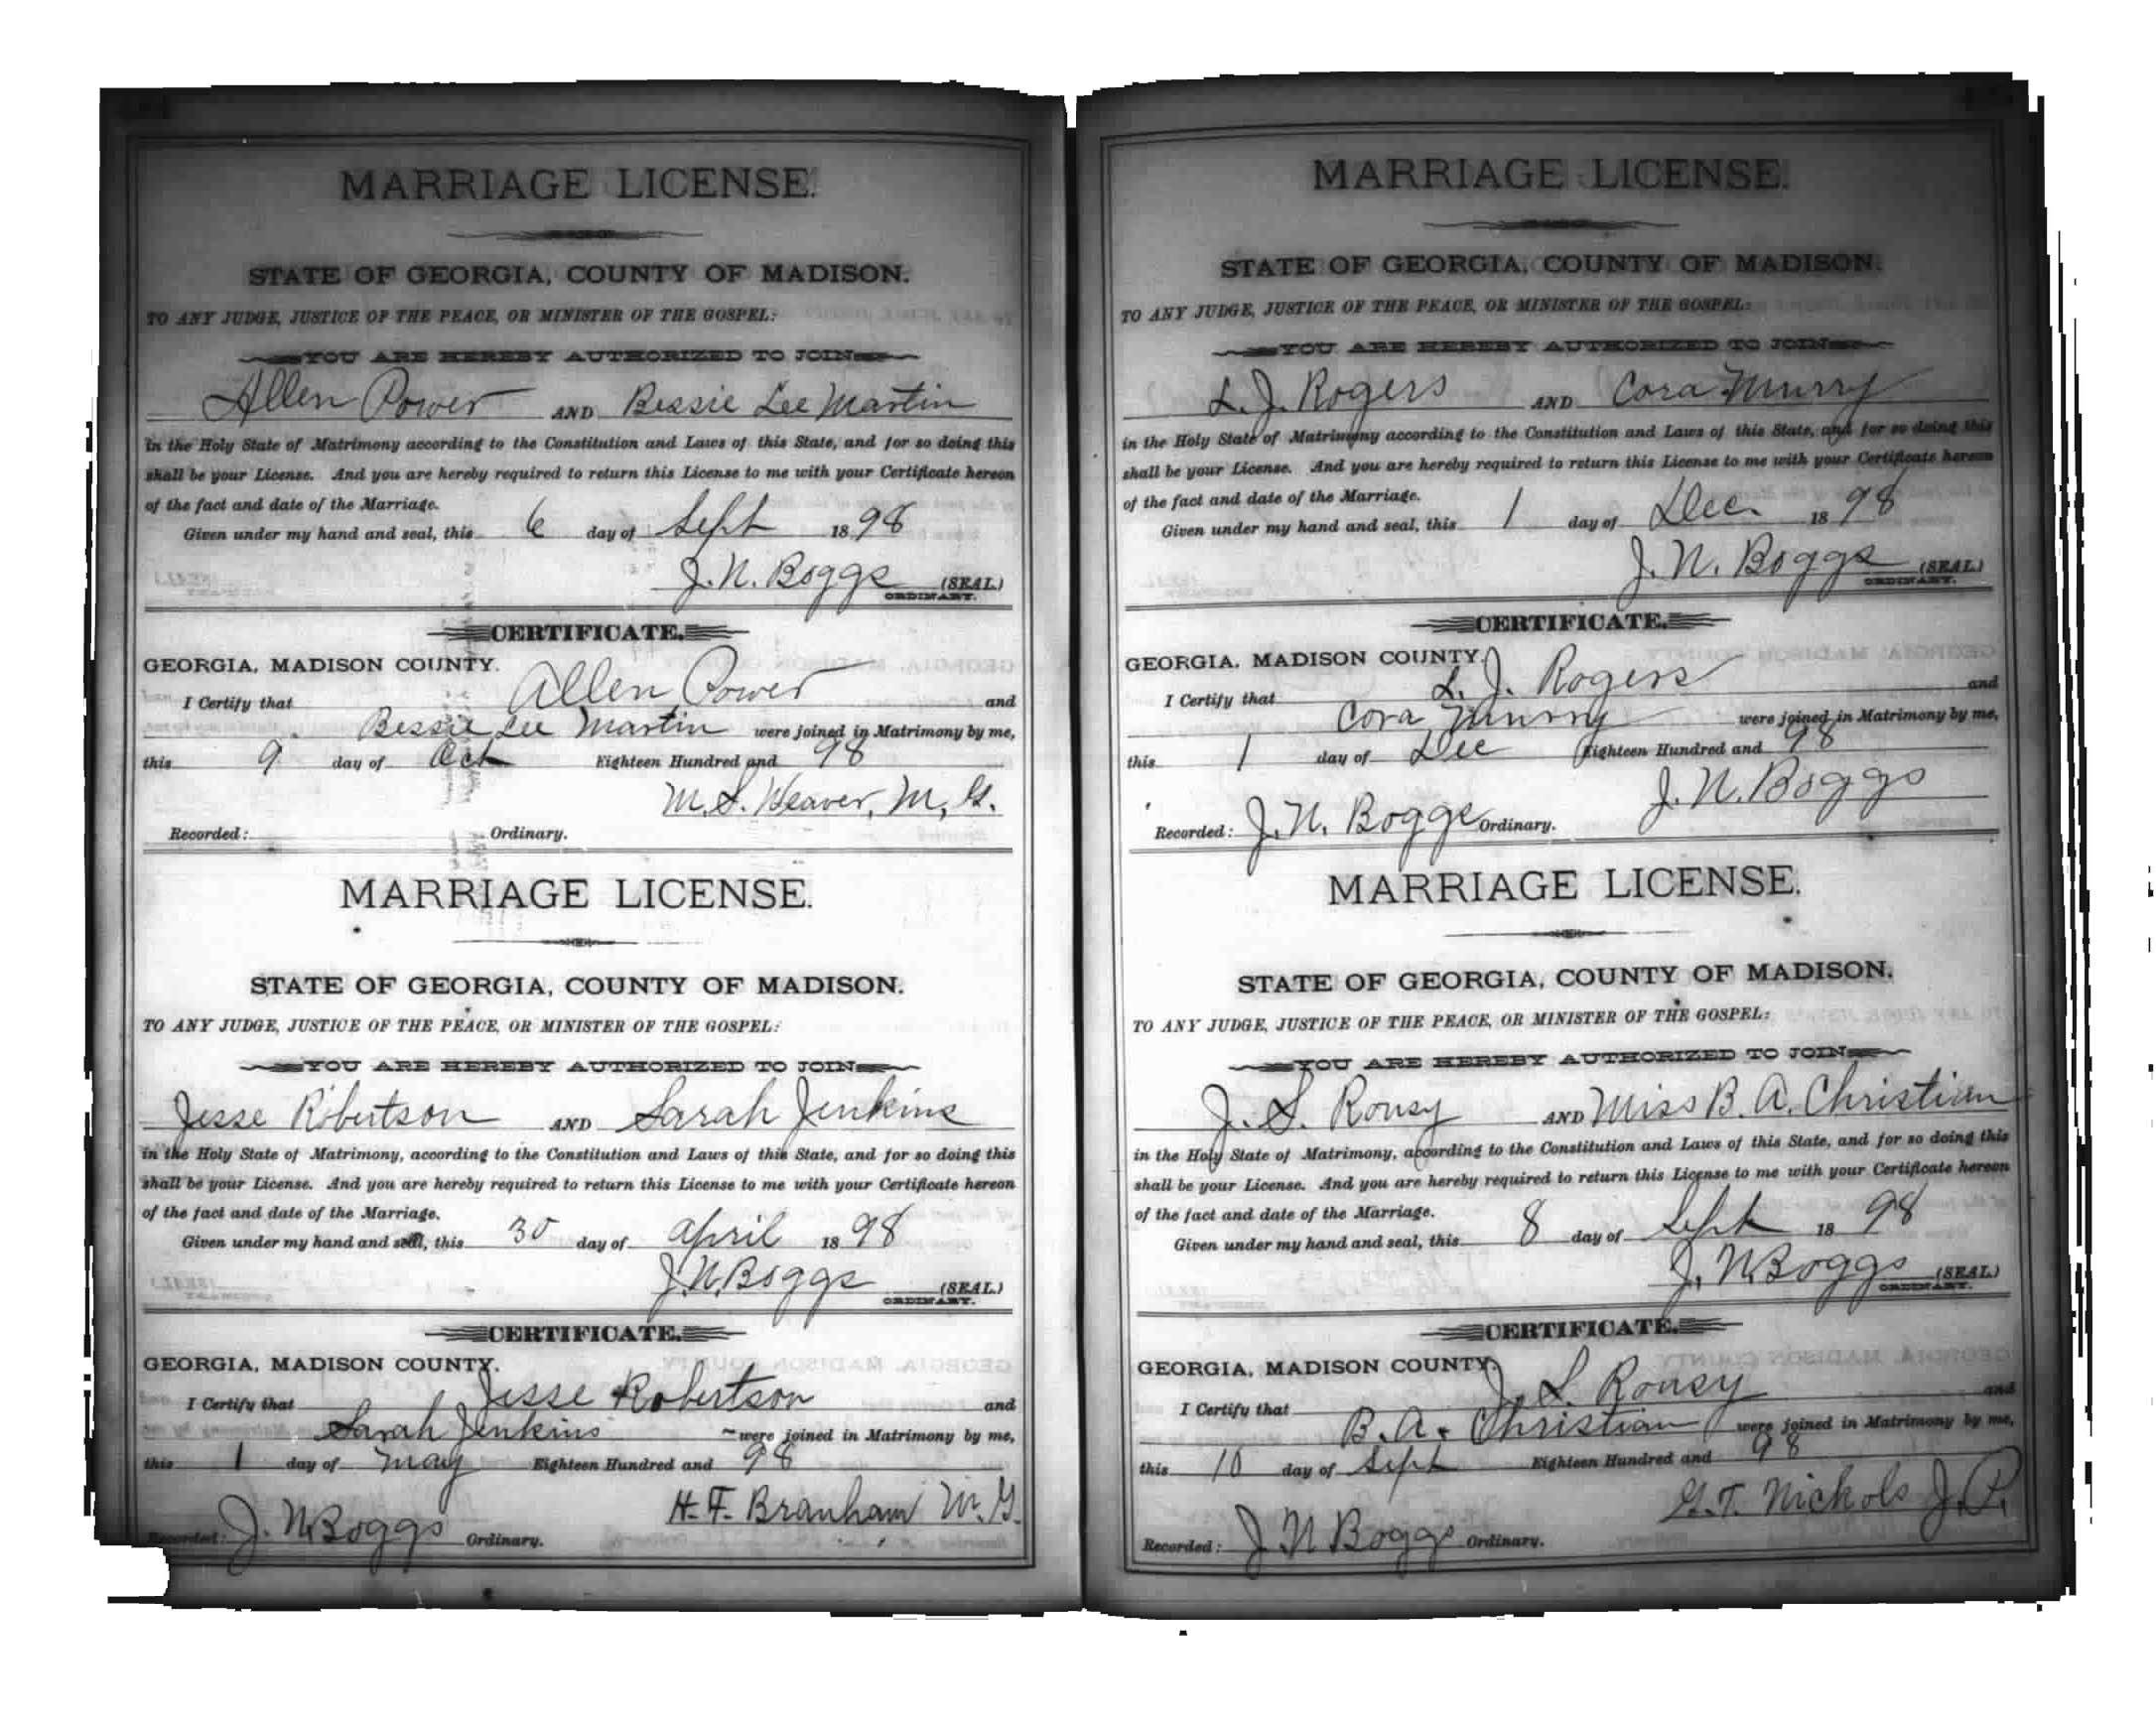 MARRIAGE LICENSE.
STATE OF GEORGIA, COUNTY OF MADISON.
TO ANY JUDGE, JUSTICE OF THE PEACE, OR MINISTER OF THE GOSPEL:
YOU ARE HEREBY AUTHORIZED TO JOIN
Allen Power AND Bessie Lee Martin
in the Holy State of Matrimony according to the Constitution and Laws of this State, and for so doing this
shall be your License. And you are hereby required to return this License to me with your Certificate hereon
of the fact and date of the Marriage.
Given under my hand and seal, this 6 day of Sept 1898
J. N. Boggs (SEAL)
ORDINARY.
CERTIFICATE.
GEORGIA, MADISON COUNTY.
I Certify that Allen Power and
Bessie Lee Martin were joined in Matrimony by me,
this 9 day of Oct Eighteen Hundred and 98
M. S. Weaver, M, G.
Recorded: Ordinary.
MARRIAGE LICENSE.
STATE OF GEORGIA, COUNTY OF MADISON.
TO ANY JUDGE, JUSTICE OF THE PEACE, OR MINISTER OF THE GOSPEL:
YOU ARE HEREBY AUTHORIZED TO JOIN
Jesse Robertson AND Sarah Jenkins
in the Holy State of Matrimony, according to the Constitution and Laws of this State, and for so doing this
shall be your License. And you are hereby required to return this License to me with your Certificate hereon
of the fact and date of the Marriage.
Given under my hand and seal, this 30 day of April 1898
J. N. Boggs (SEAL)
ORDINARY.
CERTIFICATE.
GEORGIA, MADISON COUNTY.
I Certify that Jesse Robertson and
Sarah Jenkins were joined in Matrimony by me,
this 1 day of May Eighteen Hundred and 98
H. F. Branham M. G.
Recorded: J. N. Boggs Ordinary.
MARRIAGE LICENSE.
STATE OF GEORGIA, COUNTY OF MADISON.
TO ANY JUDGE, JUSTICE OF THE PEACE, OR MINISTER OF THE GOSPEL:
YOU ARE HEREBY AUTHORIZED TO JOIN
L. J. Rogers AND Cora Murry
in the Holy State of Matrimony according to the Constitution and Laws of this State, and for so doing this
shall be your License. And you are hereby required to return this License to me with your Certificate hereon
of the fact and date of the Marriage.
Given under my hand and seal, this 1 day of Dec. 1898
J. N. Boggs (SEAL)
ORDINARY.
CERTIFICATE.
GEORGIA, MADISON COUNTY.
I Certify that L. J. Rogers and
Cora Murry were joined in Matrimony by me,
this 1 day of Dec Eighteen Hundred and 98
J. N. Boggs
Recorded: J. N. Boggs Ordinary.
MARRIAGE LICENSE.
STATE OF GEORGIA, COUNTY OF MADISON.
TO ANY JUDGE, JUSTICE OF THE PEACE, OR MINISTER OF THE GOSPEL:
YOU ARE HEREBY AUTHORIZED TO JOIN
J. S. Rousy AND Miss B. A. Christian
in the Holy State of Matrimony, according to the Constitution and Laws of this State, and for so doing this
shall be your License. And you are hereby required to return this License to me with your Certificate hereon
of the fact and date of the Marriage.
Given under my hand and seal, this 8 day of Sept 1898
J. N. Boggs (SEAL)
ORDINARY.
CERTIFICATE.
GEORGIA, MADISON COUNTY.
I Certify that J. S. Rousy and
B. A. Christian were joined in Matrimony by me,
this 10 day of Sept Eighteen Hundred and 98
G. T. Nichols J. P.
Recorded: J N Boggs Ordinary.